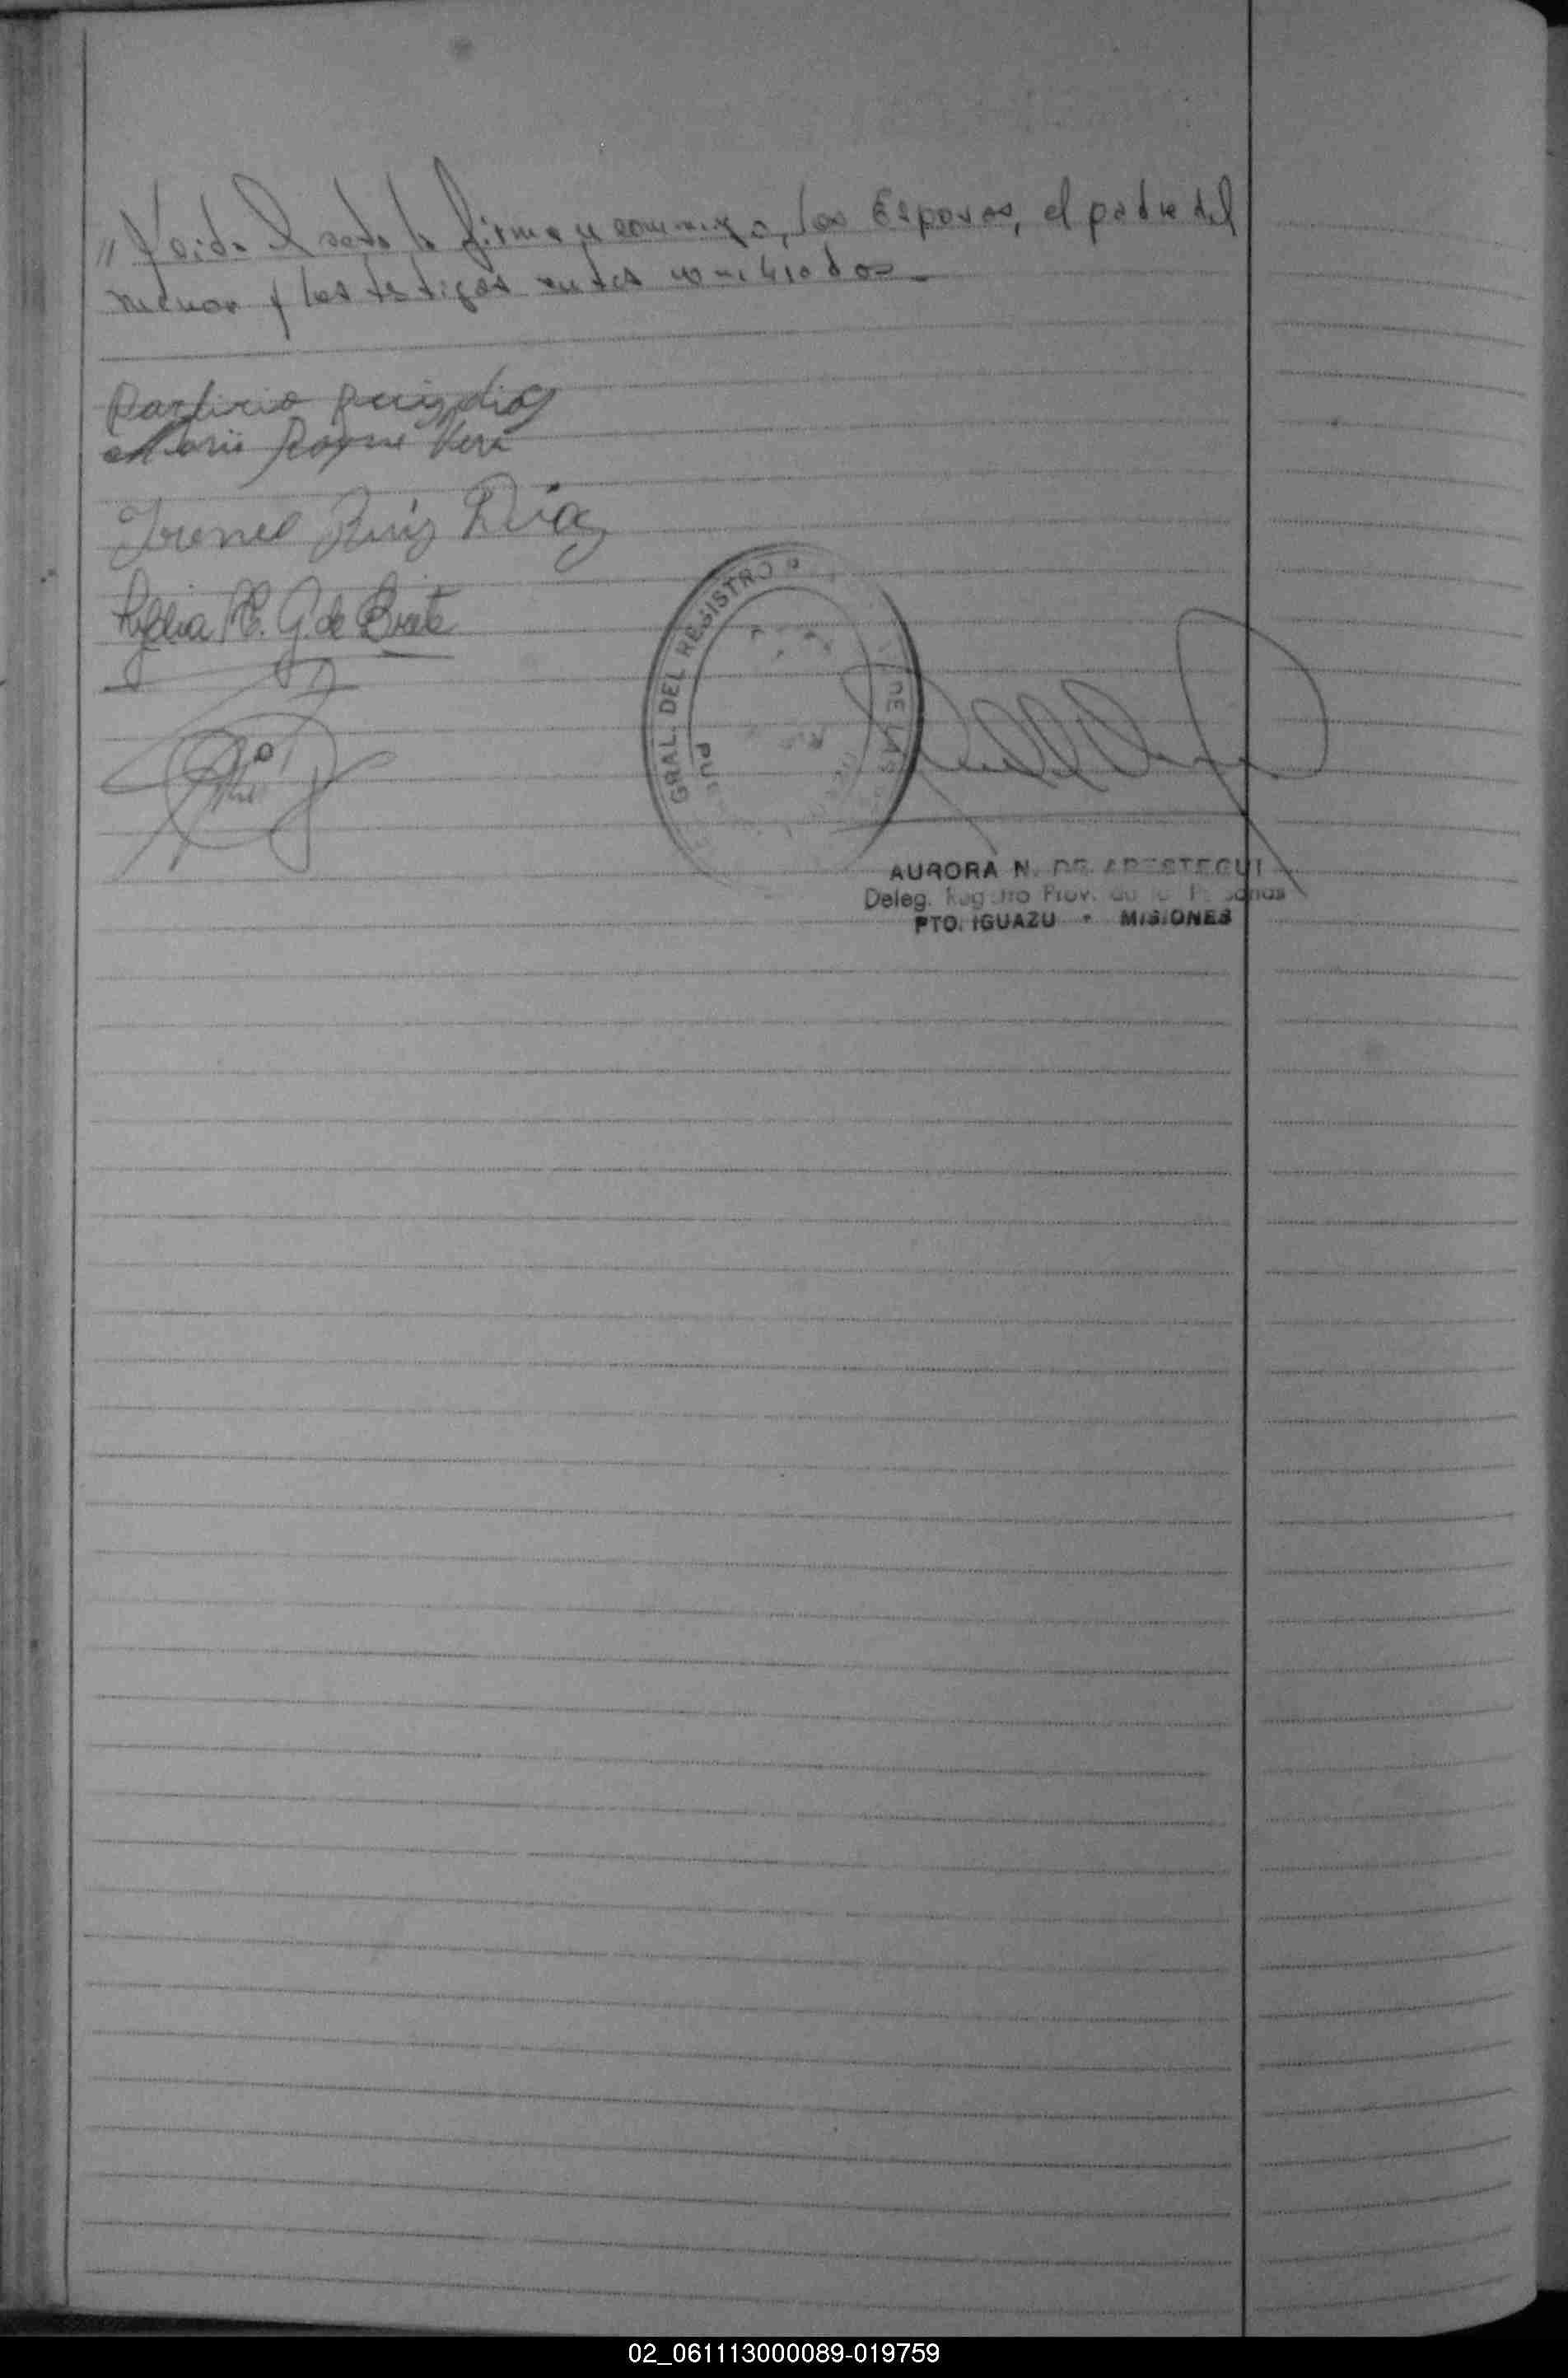 " Leida el acta la firman conmigo, los Esposos, el padre del
menor y los testigos antes nombrados.-
Porfirio Ruiz Diaz
Maria Roque Vera
Ireneo Ruiz Diaz
Lydia E. G. de
GRAL. DEL REGISTRO P
DE LAS
PUE
AURORA N. DE ARESTEGUI
Deleg. Registro Prov. de las Personas
PTO. IGUAZU - MISIONES
02_061113000089-019759